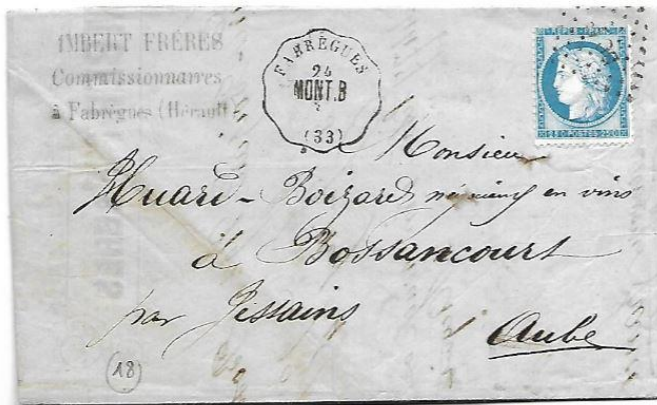 IMBERT FRÉRES
Commissionnaires
à Fabrègues (Hérault)
FABRÈGUES
24
MONT.B
(33)
REPUB. FRANC.
25 C·POSTES·25 C
Monsieur
Huard-Boizard négociant en vins
à Bossancourt
par Jessains
Aube
(18)